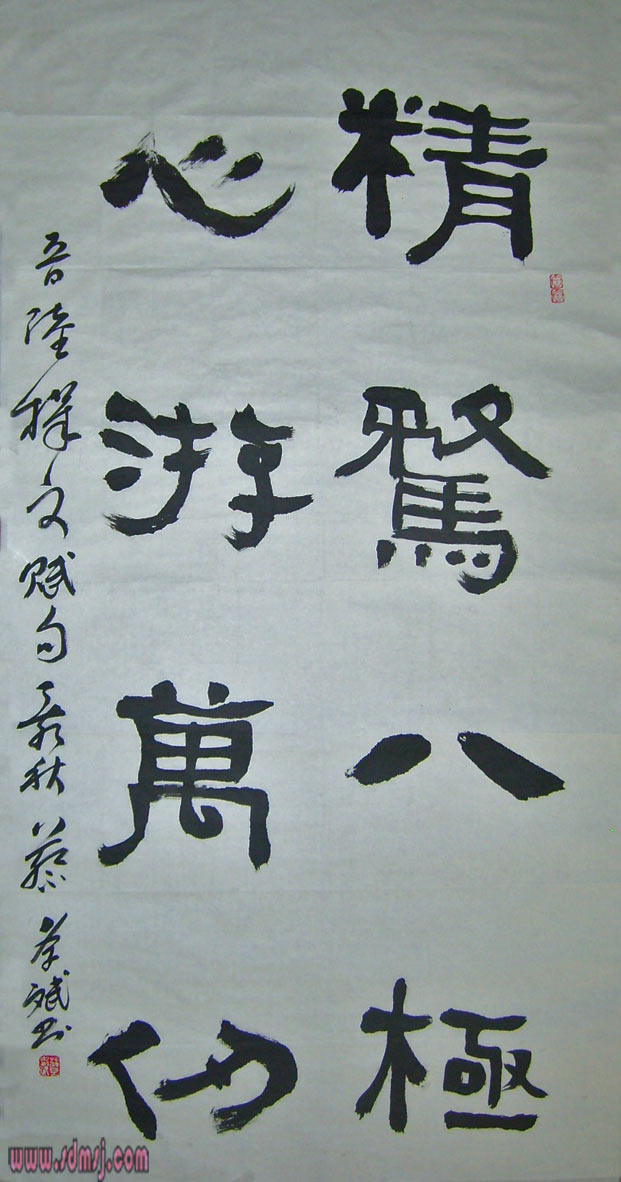 精騖八極
心游萬仞
晉陸機文賦句秋孝斌书
www.sdmsj.com